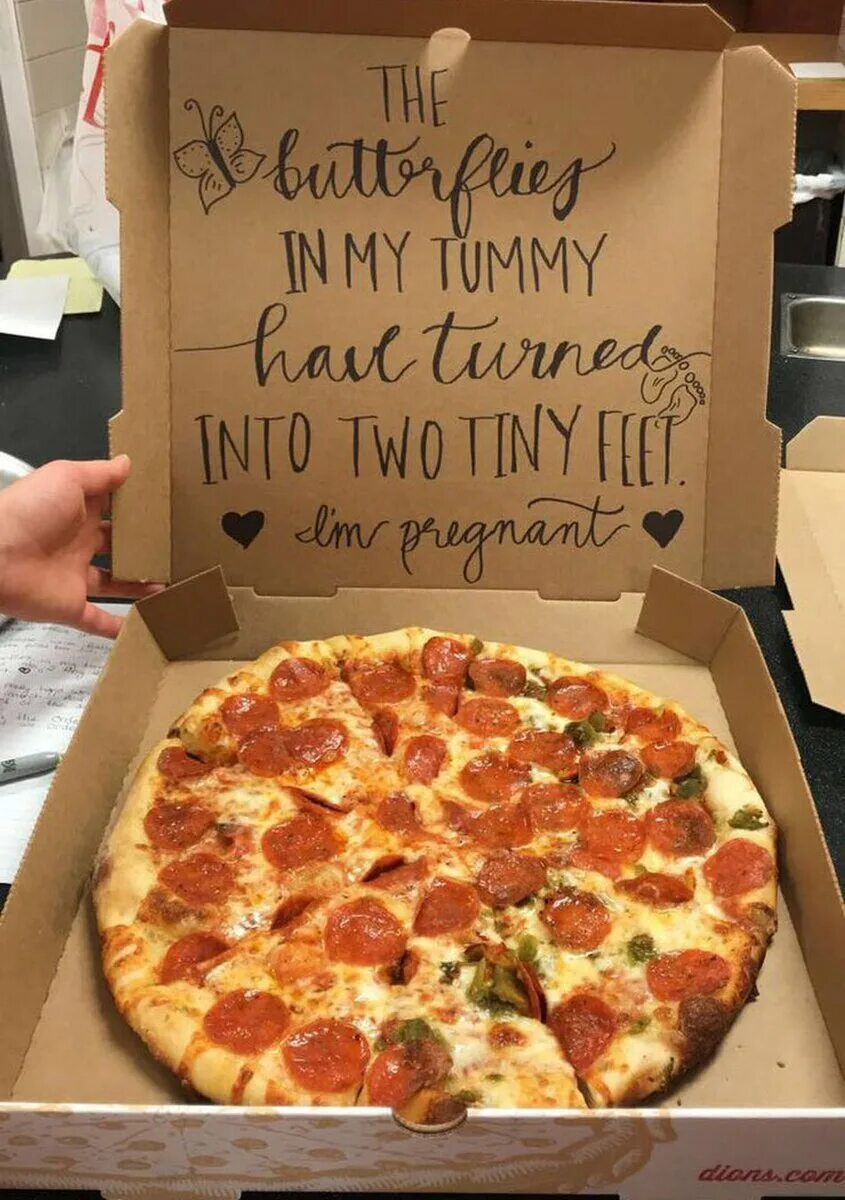 THE
butterflies
IN MY TUMMY
have turned
INTO TWO TINY FEET.
I'm pregnant
dions.com